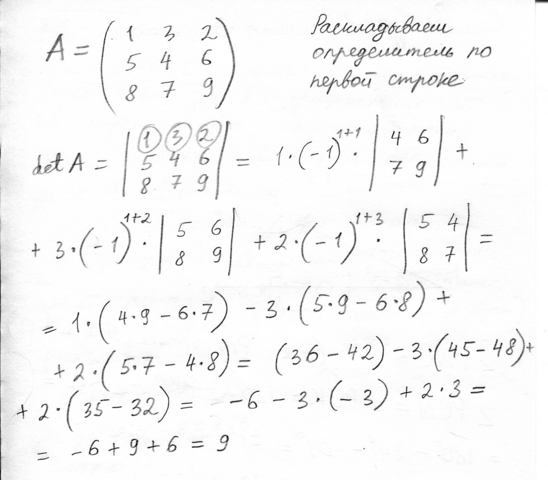 A = ( 1 3 2
5 4 6
8 7 9 )
Раскладываем
определитель по
первой строке
det A = | 1 3 2
5 4 6
8 7 9 | = 1·(-1)^{1+1}· | 4 6
7 9 | +
+ 3·(-1)^{1+2}· | 5 6
8 9 | + 2·(-1)^{1+3}· | 5 4
8 7 | =
= 1·(4·9 - 6·7) - 3·(5·9 - 6·8) +
+ 2·(5·7 - 4·8) = (36 - 42) - 3·(45 - 48) +
+ 2·(35 - 32) = -6 - 3·(-3) + 2·3 =
= -6 + 9 + 6 = 9